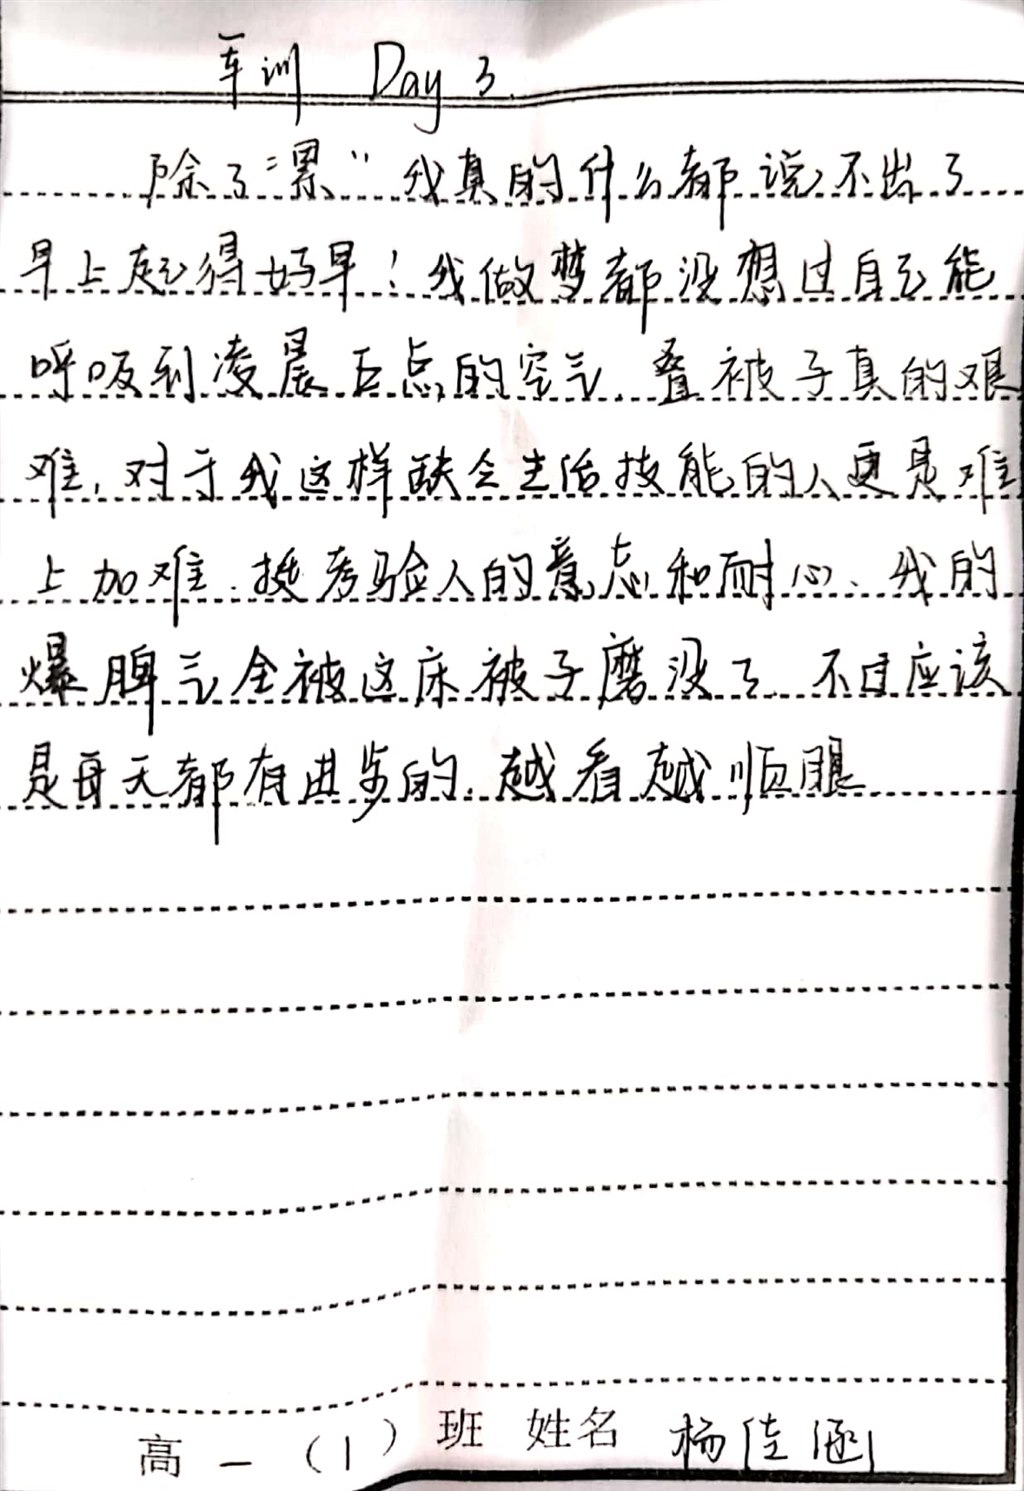 军训 Day 3.
除了“累”我真的什么都说不出了
早上起得好早！我做梦都没想过自己能
呼吸到凌晨五点的空气.叠被子真的艰
难,对于我这样缺乏生活技能的人更是难
上加难.挺考验人的意志和耐心、我的
爆脾气全被这床被子磨没了.不过应该
是每天都有进步的.越看越顺眼
高一（1）班 姓名 杨佳涵